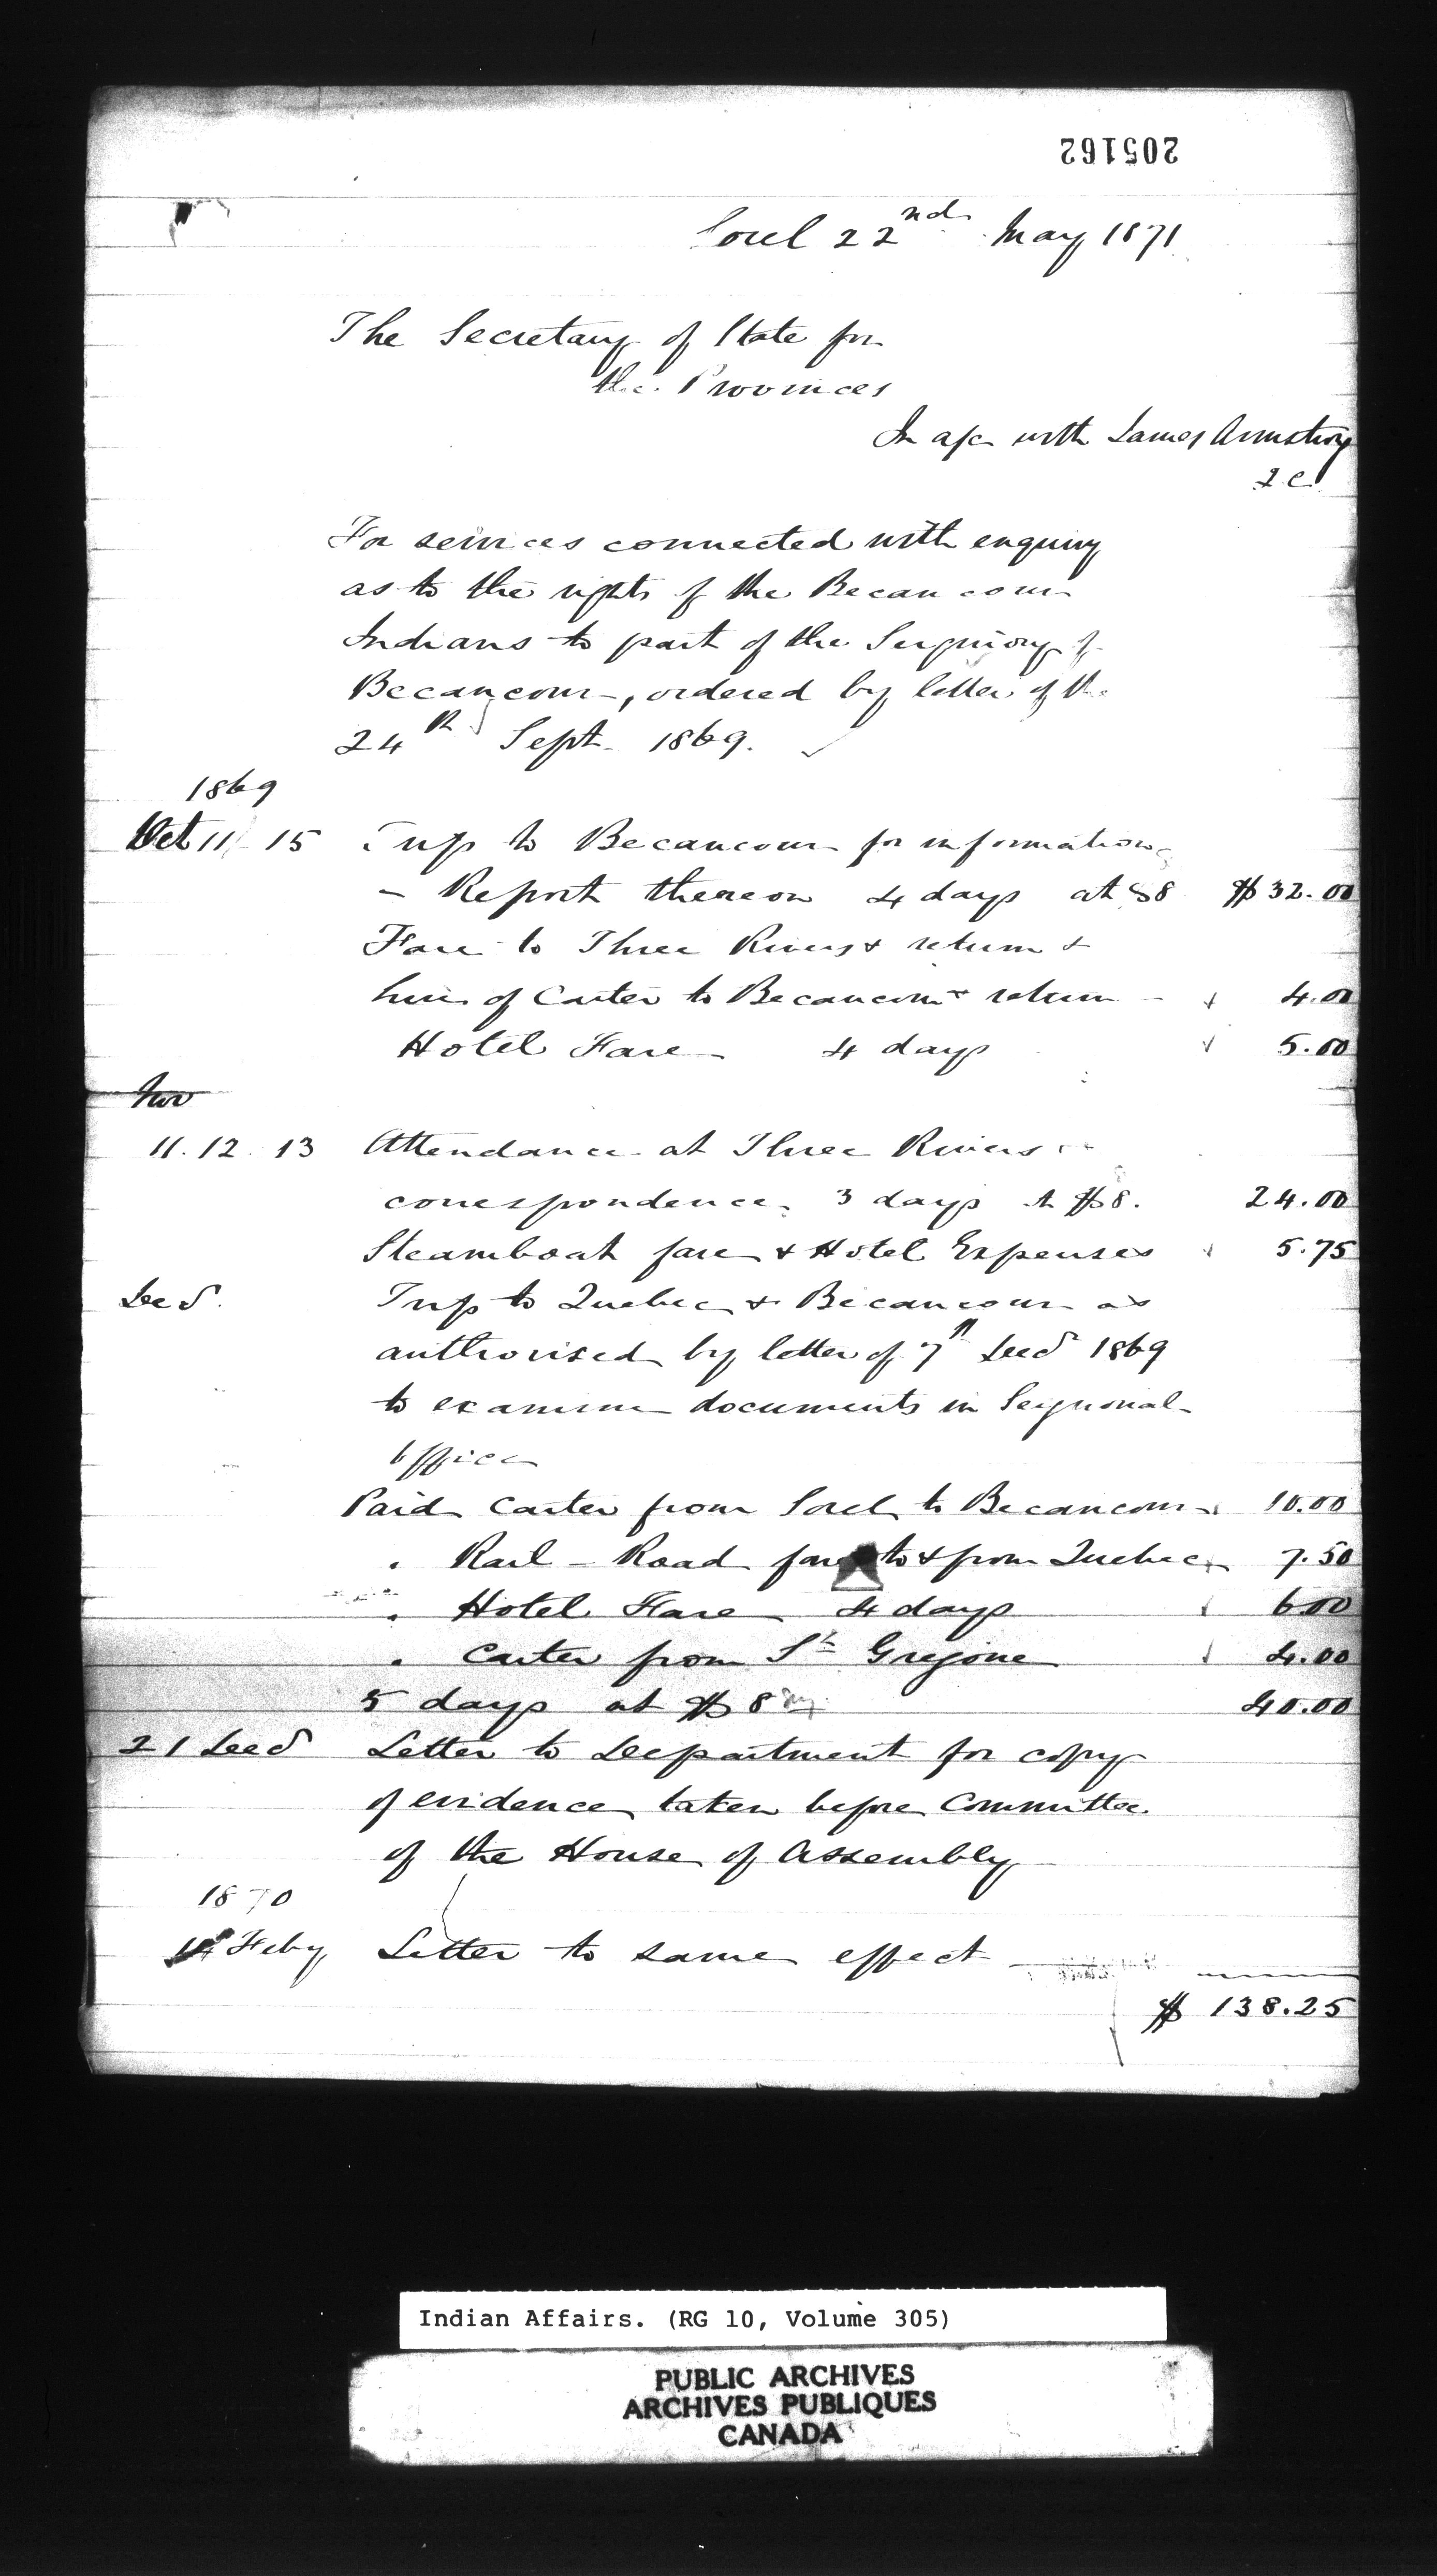 205162
Sorel 22nd May 1871
The Secretary of State for
the Provinces
In a/c with James Armstrong
Q C
For services connected with enquiry
as to the rights of the Becancour
Indians to part of the Seigniory of
Becancour, ordered by letter of the
24th Sept 1869.
1869
Oct 11 15 Trip to Becancour for information
- Report thereon 4 days at $8 $32.00
Fare to Three Rivers & return &
hire of Carter to Becancour & return - 4.00
Hotel Fare 4 days 5.00
Nov
11.12.13 Attendance at Three Rivers
correspondence, 3 days at $8. 24.00
Steamboat fare & Hotel Expenses 5.75
Decr. Trip to Quebec & Becancour as
authorised by letter of 7th Decr 1869
to examine documents in Seignorial
Office
Paid Carter from Sorel to Becancour 10.00
" Rail-Road fare to & from Quebec 7.50
" Hotel Fare 4 days 6.00
" Carter from St Gregoire 4.00
5 days at $8 40.00
21 Decr Letter to Department for copy
of evidence taken before Committee
of the House of Assembly
1870
Feby Letter to same effect
$ 138.25
Indian Affairs. (RG 10, Volume 305)
PUBLIC ARCHIVES
ARCHIVES PUBLIQUES
CANADA